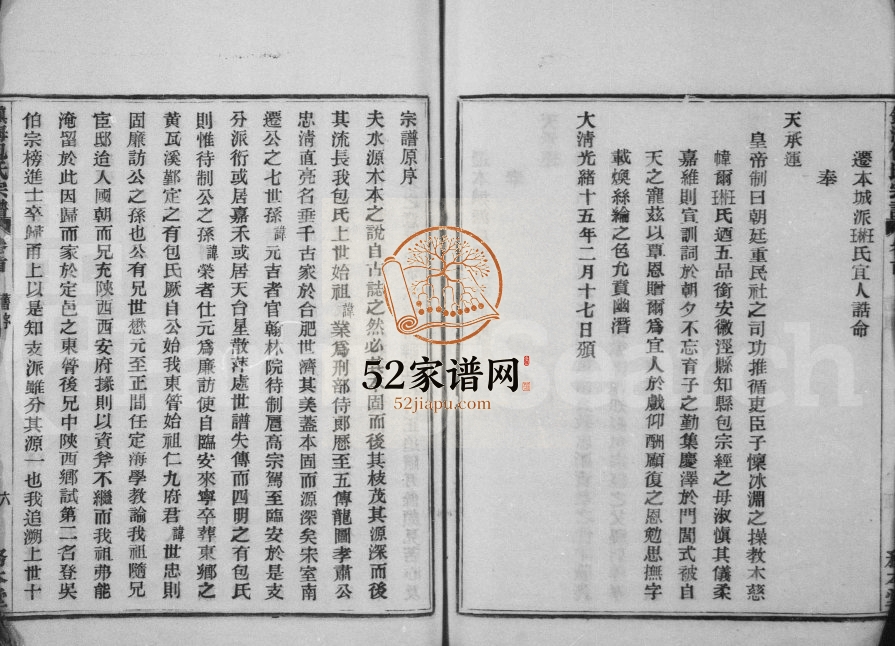 遷本城派班氏宜人誥命
奉
天承運
皇帝制曰朝廷重民社之司功推循吏臣子懍冰淵之操教本慈
幃爾班氏迺五品銜安徽涇縣知縣包宗經之母淑慎其儀柔
嘉維則宣訓詞於朝夕不忘育子之勤集慶澤於門閭式被自
天之寵茲以覃恩贈爾為宜人於戲仰酬顧復之恩勉思撫字
載煥絲綸之色允賁幽潛
大清光緒十五年二月十七日頒
宗譜原序
夫水源木本之說自古誌之然必固而後其枝茂其源深而後
其流長我包氏上世始祖諱業為刑部侍郎歷至五傳龍圖孝肅公
忠清直亮名垂千古家於合肥世濟其美蓋本固而源深矣宋室南
遷公之七世孫諱元吉者官翰林院待制扈高宗駕至臨安於是支
分派衍或居嘉禾或居天台星散萍處世譜失傳而四明之有包氏
則惟待制公之孫諱榮者仕元為廉訪使自臨安來寧卒葬東鄉之
黃瓦溪鄞定之有包氏厥自公始我東管始祖仁九府君諱世忠則
固廉訪公之孫也公有兄世懋元至正間任定海學教諭我祖隨兄
宦邸迨入國朝而兄充陝西西安府掾則以資斧不繼而我祖弗能
淹留於此因歸而家於定邑之東管後兄中陝西鄉試第二名登吳
伯宗榜進士卒歸甬上以是知支派雖分其源一也我追溯上世十
六
52家谱网
52jiapu.com